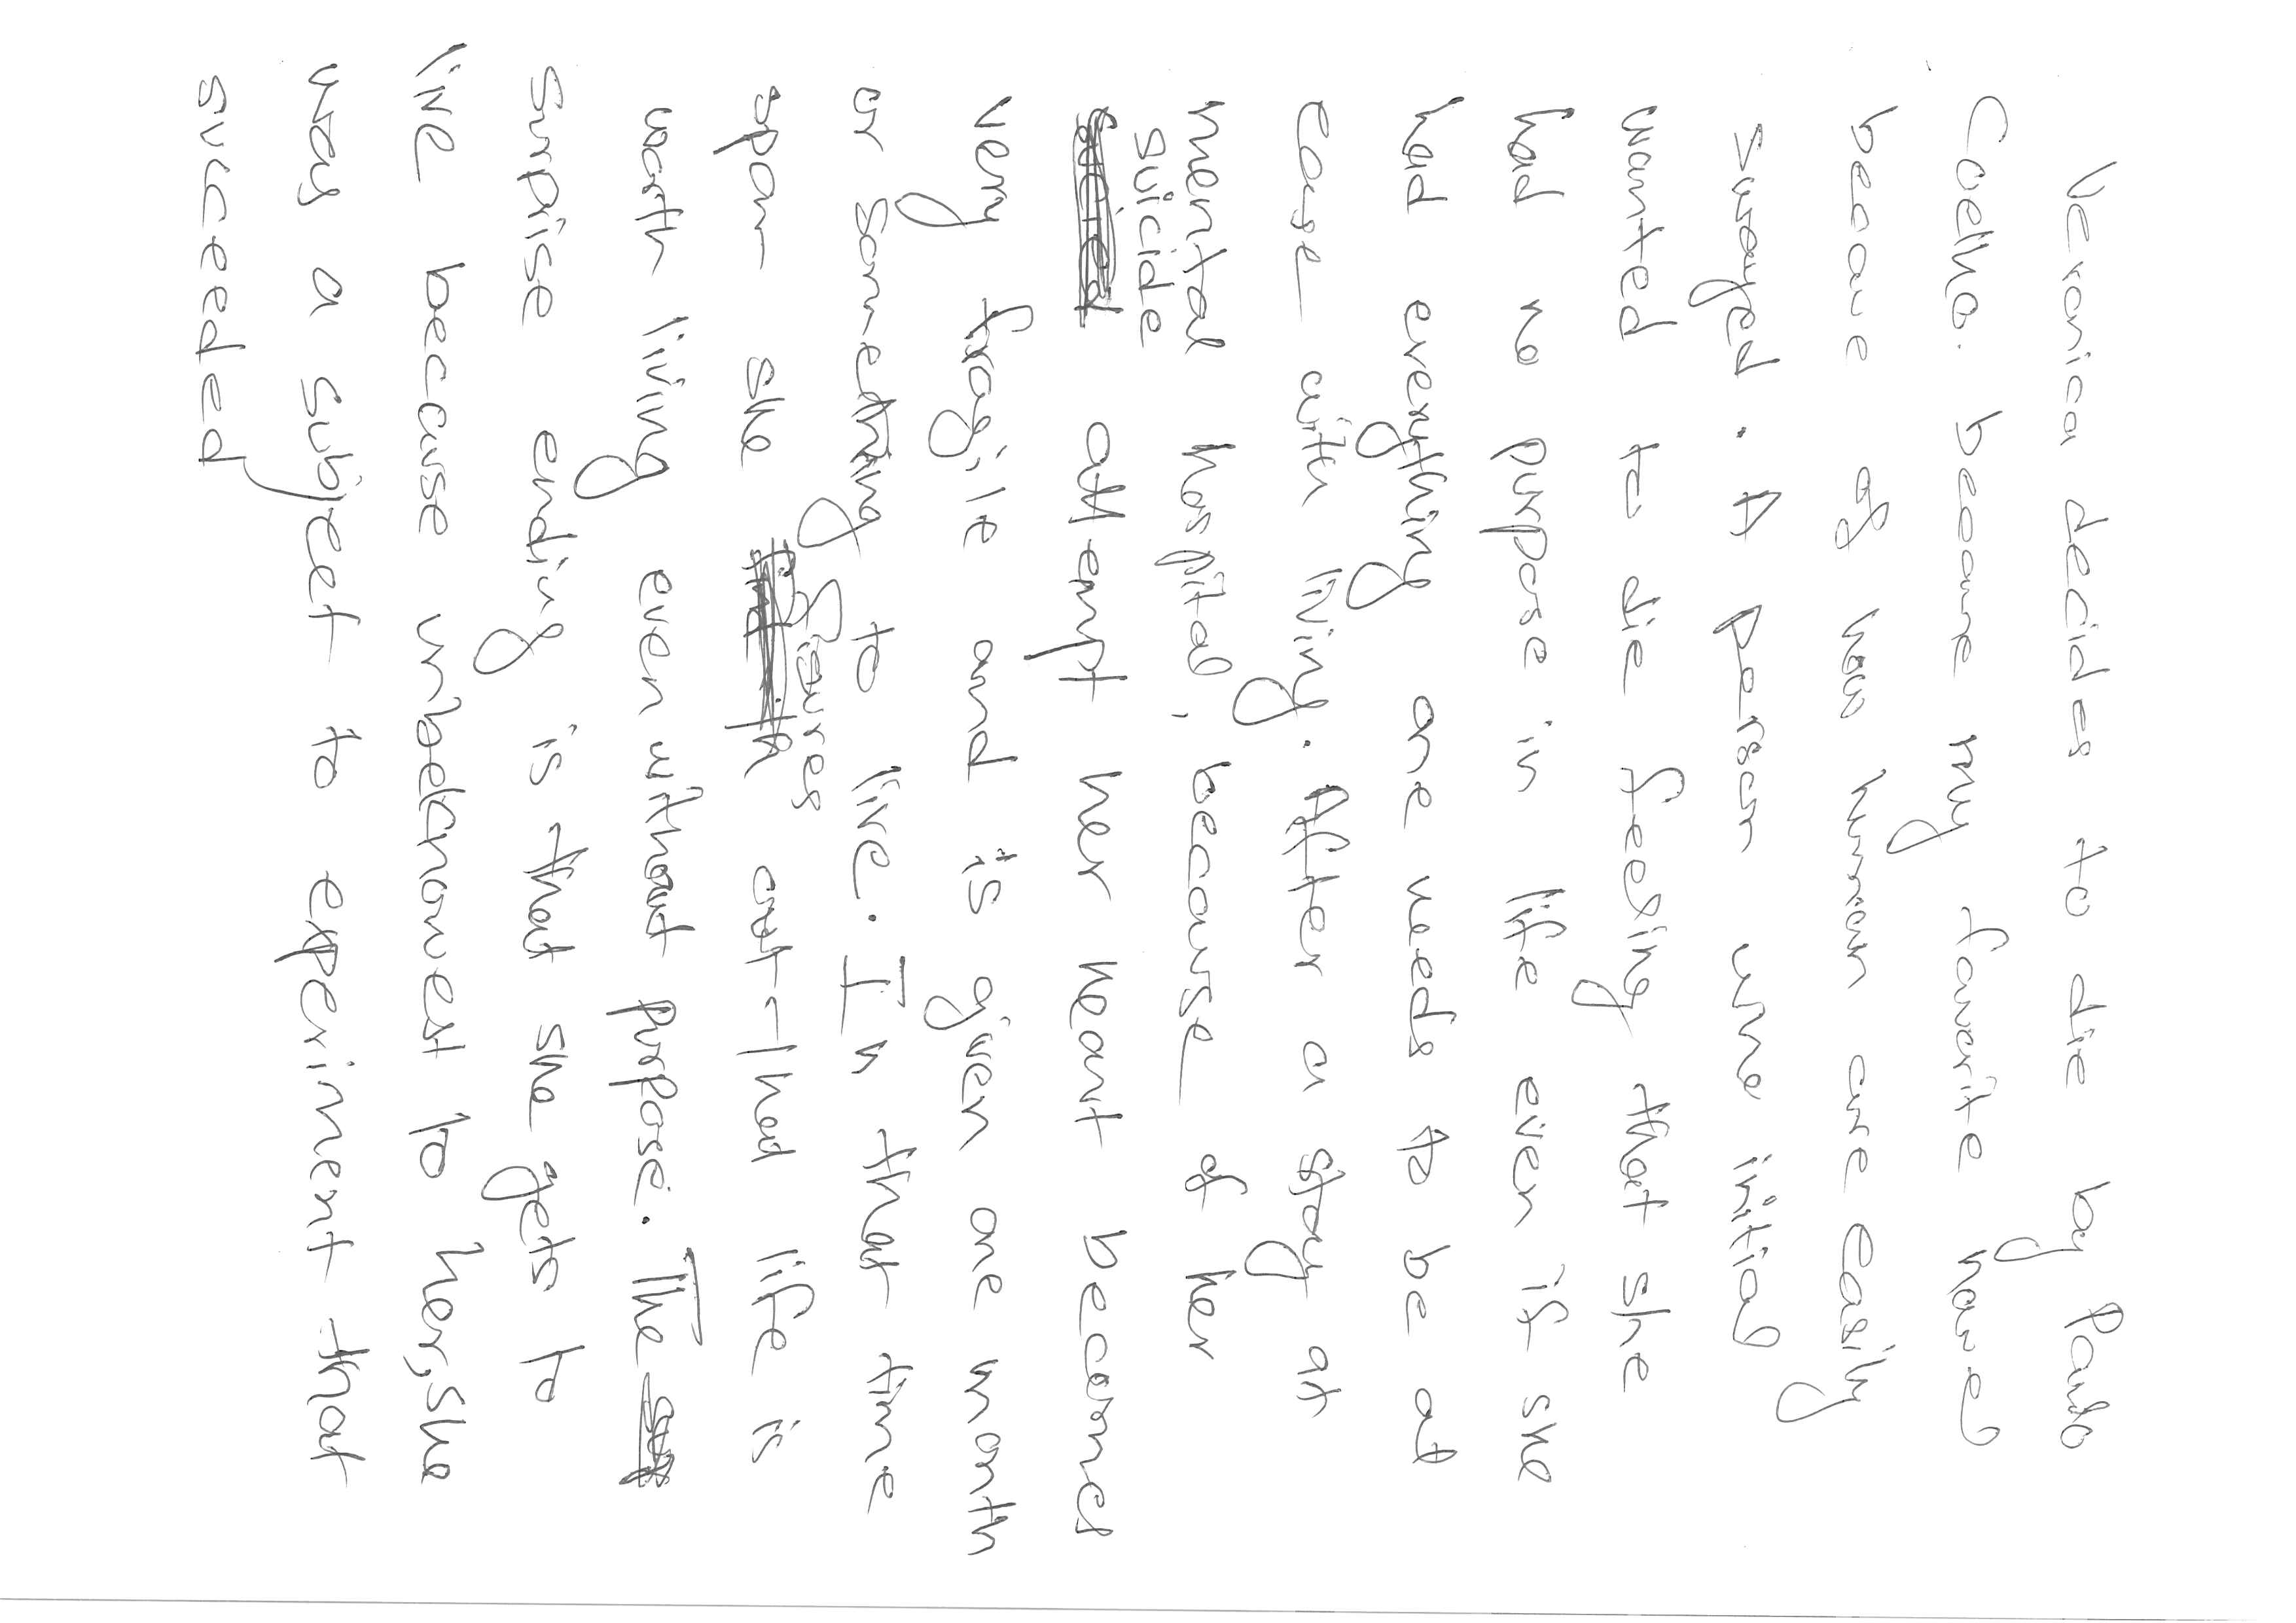 Veronica decides to die by Paulo
Coelho. became my favorite novel
becaue of how human are easily
swayed. A person who initial
wanted to die feeling that she
had no purpose in life even if she
had everything one needs to be at
ease with living. After a stay at
mental hospital, because of her
suicide
attempt her heart becomes
very fragile and is given one month
or something to live. In that time
figures
span she out that life is
worth living even without purpose. The
surprise ending is that she gets to
live because unbeknowest to her, she
was a subject to experiment that
succeeded